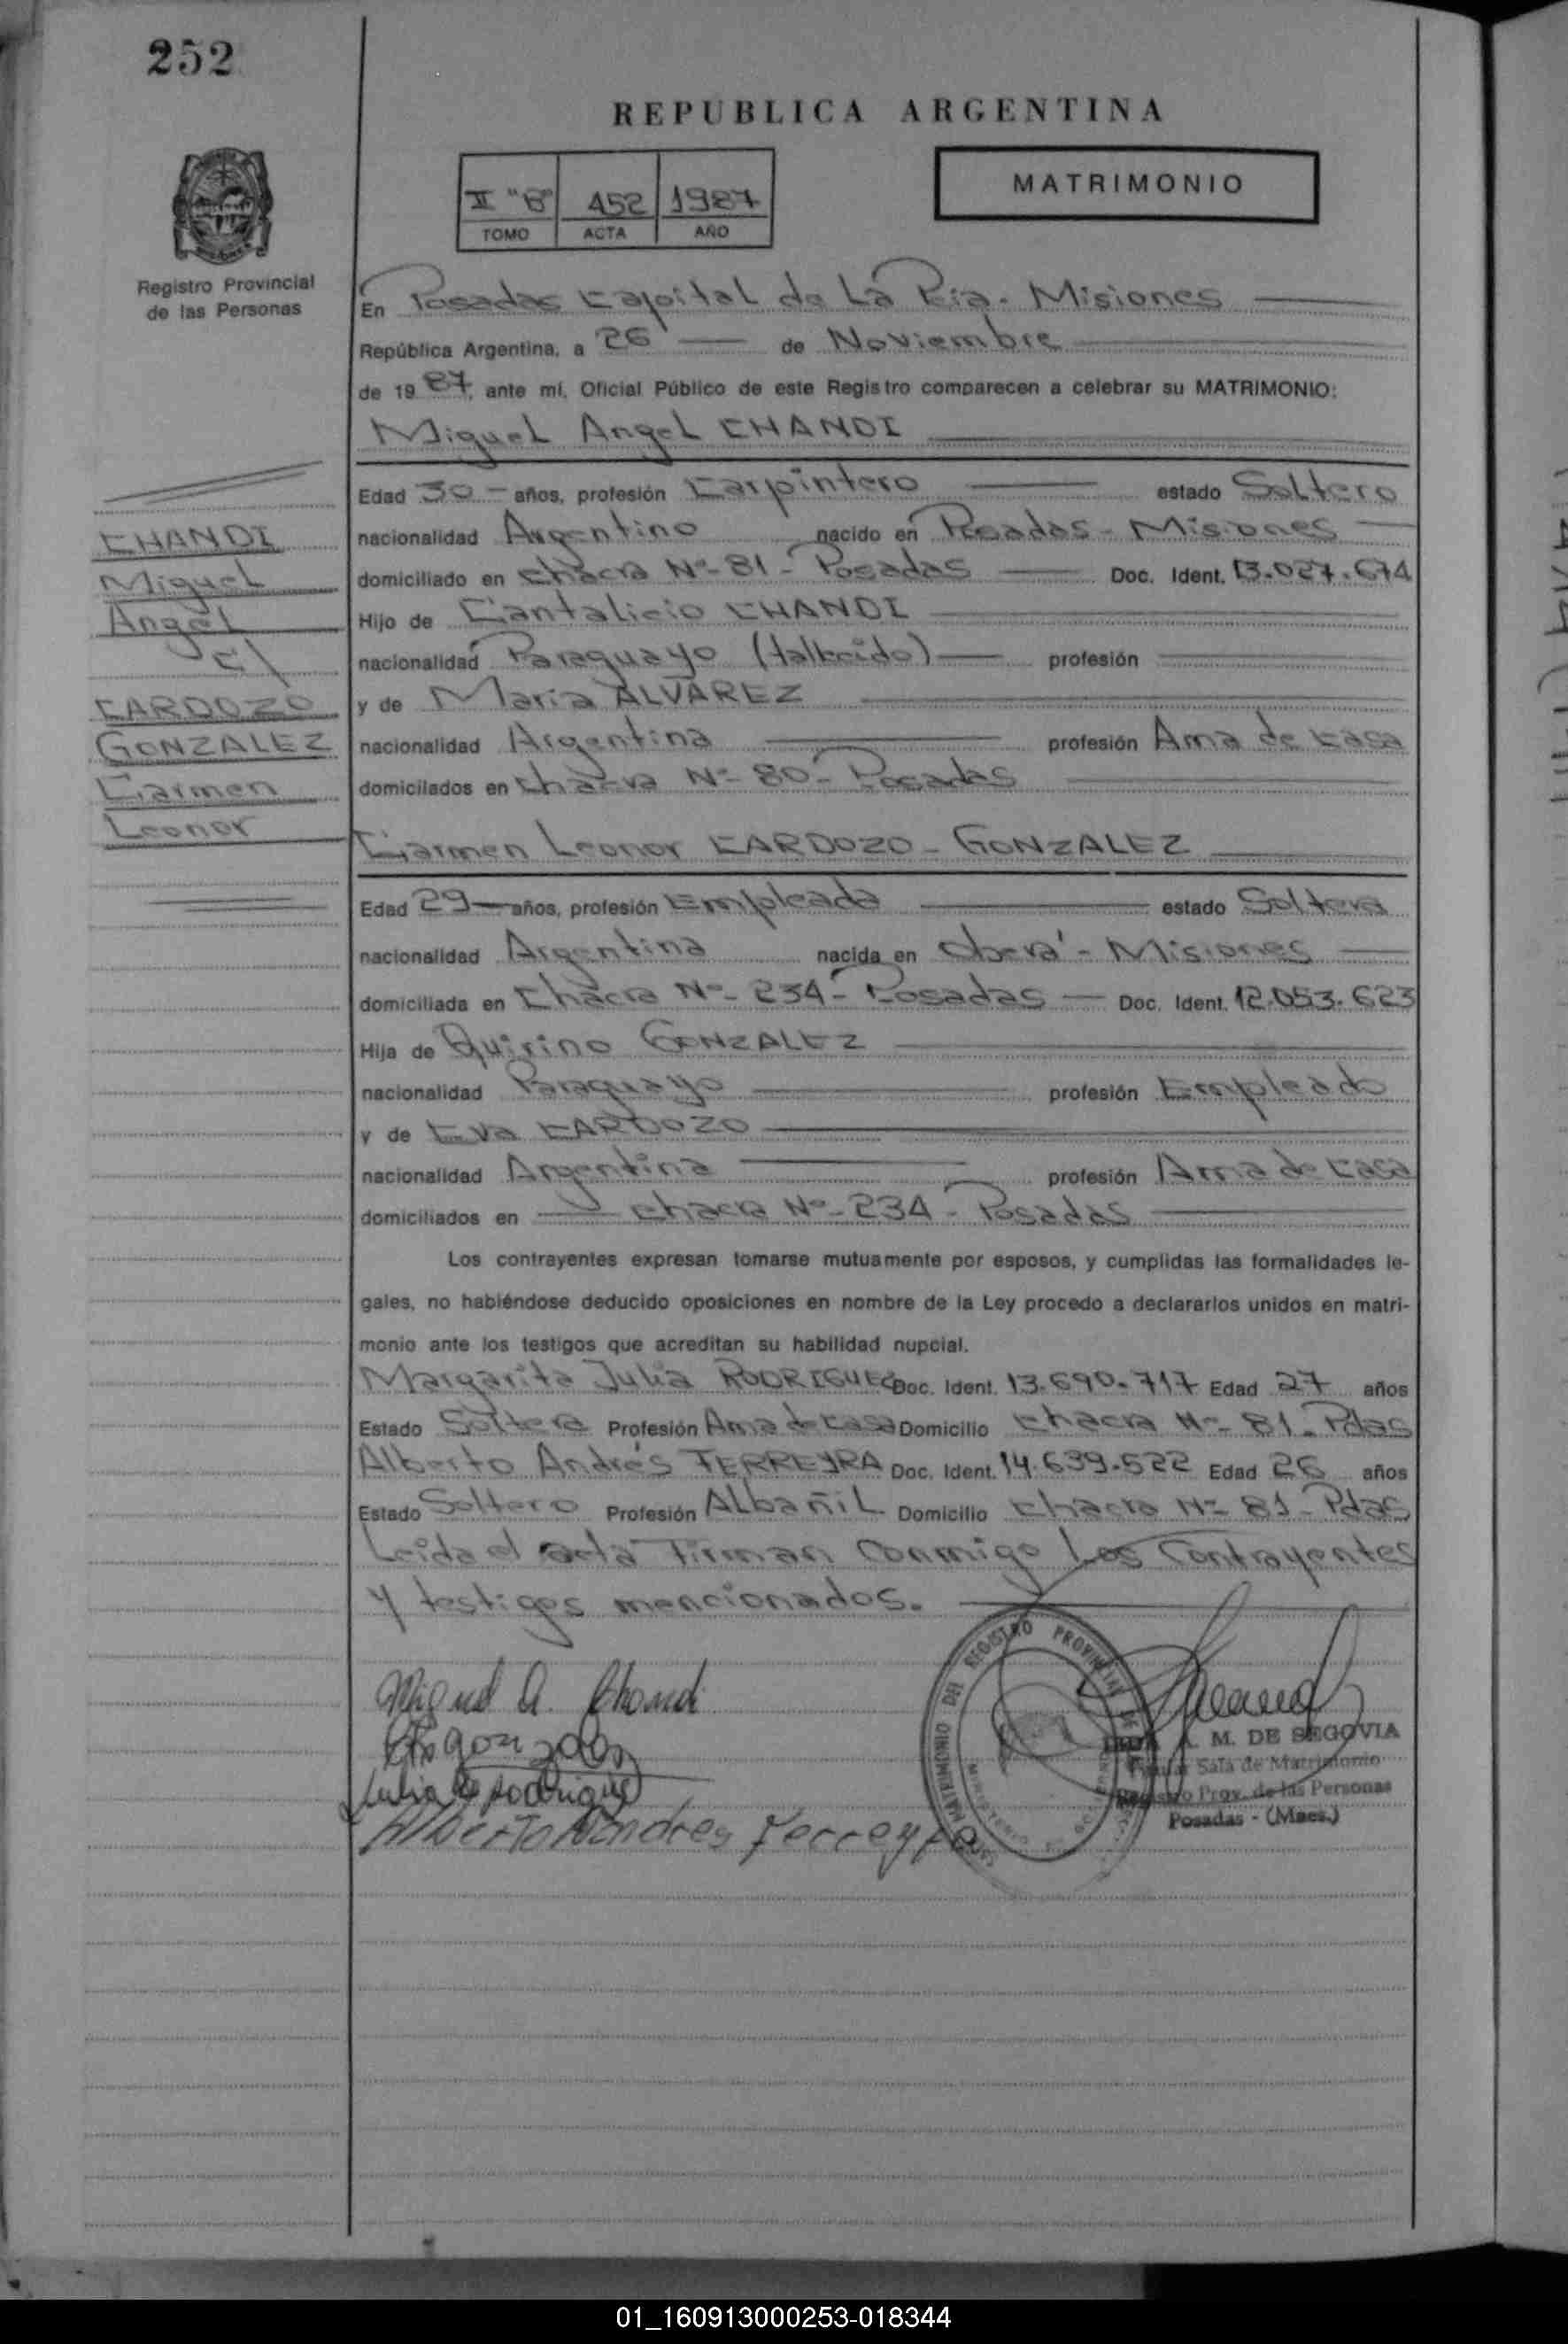 252
REPUBLICA ARGENTINA
II "B" 452 1987
TOMO ACTA AÑO
MATRIMONIO
Registro Provincial
de las Personas
En Posadas Capital de La Pcia. Misiones
República Argentina, a 26 de Noviembre
de 1987, ante mí, Oficial Público de este Registro comparecen a celebrar su MATRIMONIO:
Miguel Angel CHANDI
Edad 30 años, profesión Carpintero estado Soltero
nacionalidad Argentino nacido en Posadas - Misiones
domiciliado en Chacra Nº 81 - Posadas Doc. Ident. 13.027.674
Hijo de Cantalicio CHANDI
nacionalidad Paraguayo (fallecido) profesión
y de Maria ALVAREZ
nacionalidad Argentina profesión Ama de casa
domicilados en Chacra Nº 80 - Posadas
CHANDI
Miguel
Angel
c/
CARDOZO
GONZALEZ
Carmen
Leonor
Carmen Leonor CARDOZO - GONZALEZ
Edad 29 años, profesión Empleada estado Soltera
nacionalidad Argentina nacida en Oberá - Misiones
domiciliada en Chacra Nº 234 - Posadas Doc. Ident. 12.053.623
Hija de Quirino GONZALEZ
nacionalidad Paraguayo profesión Empleado
y de Eva CARDOZO
nacionalidad Argentina profesión Ama de casa
domiciliados en Chacra Nº 234 - Posadas
Los contrayentes expresan tomarse mutuamente por esposos, y cumplidas las formalidades le-
gales, no habiéndose deducido oposiciones en nombre de la Ley procedo a declararlos unidos en matri-
monio ante los testigos que acreditan su habilidad nupcial.
Margarita Julia RODRIGUEZ Doc. Ident. 13.690.717 Edad 27 años
Estado Soltera Profesión Ama de casa Domicilio Chacra Nº 81 - Pdas
Alberto Andrés FERREYRA Doc. Ident. 14.639.522 Edad 26 años
Estado Soltero Profesión Albañil Domicilio Chacra Nº 81 - Pdas
Leida el acta Firman Conmigo Los Contrayentes
y testigos mencionados.
Miguel A. Chandi
Gonzalez
Julia Rodriguez
Alberto Andres Ferreyra
REGISTRO PROVINCIAL DE
M. DE SEGOVIA
Sala de Matrimonio
Registro Prov. de las Personas
Posadas - (Mnes.)
01_160913000253-018344